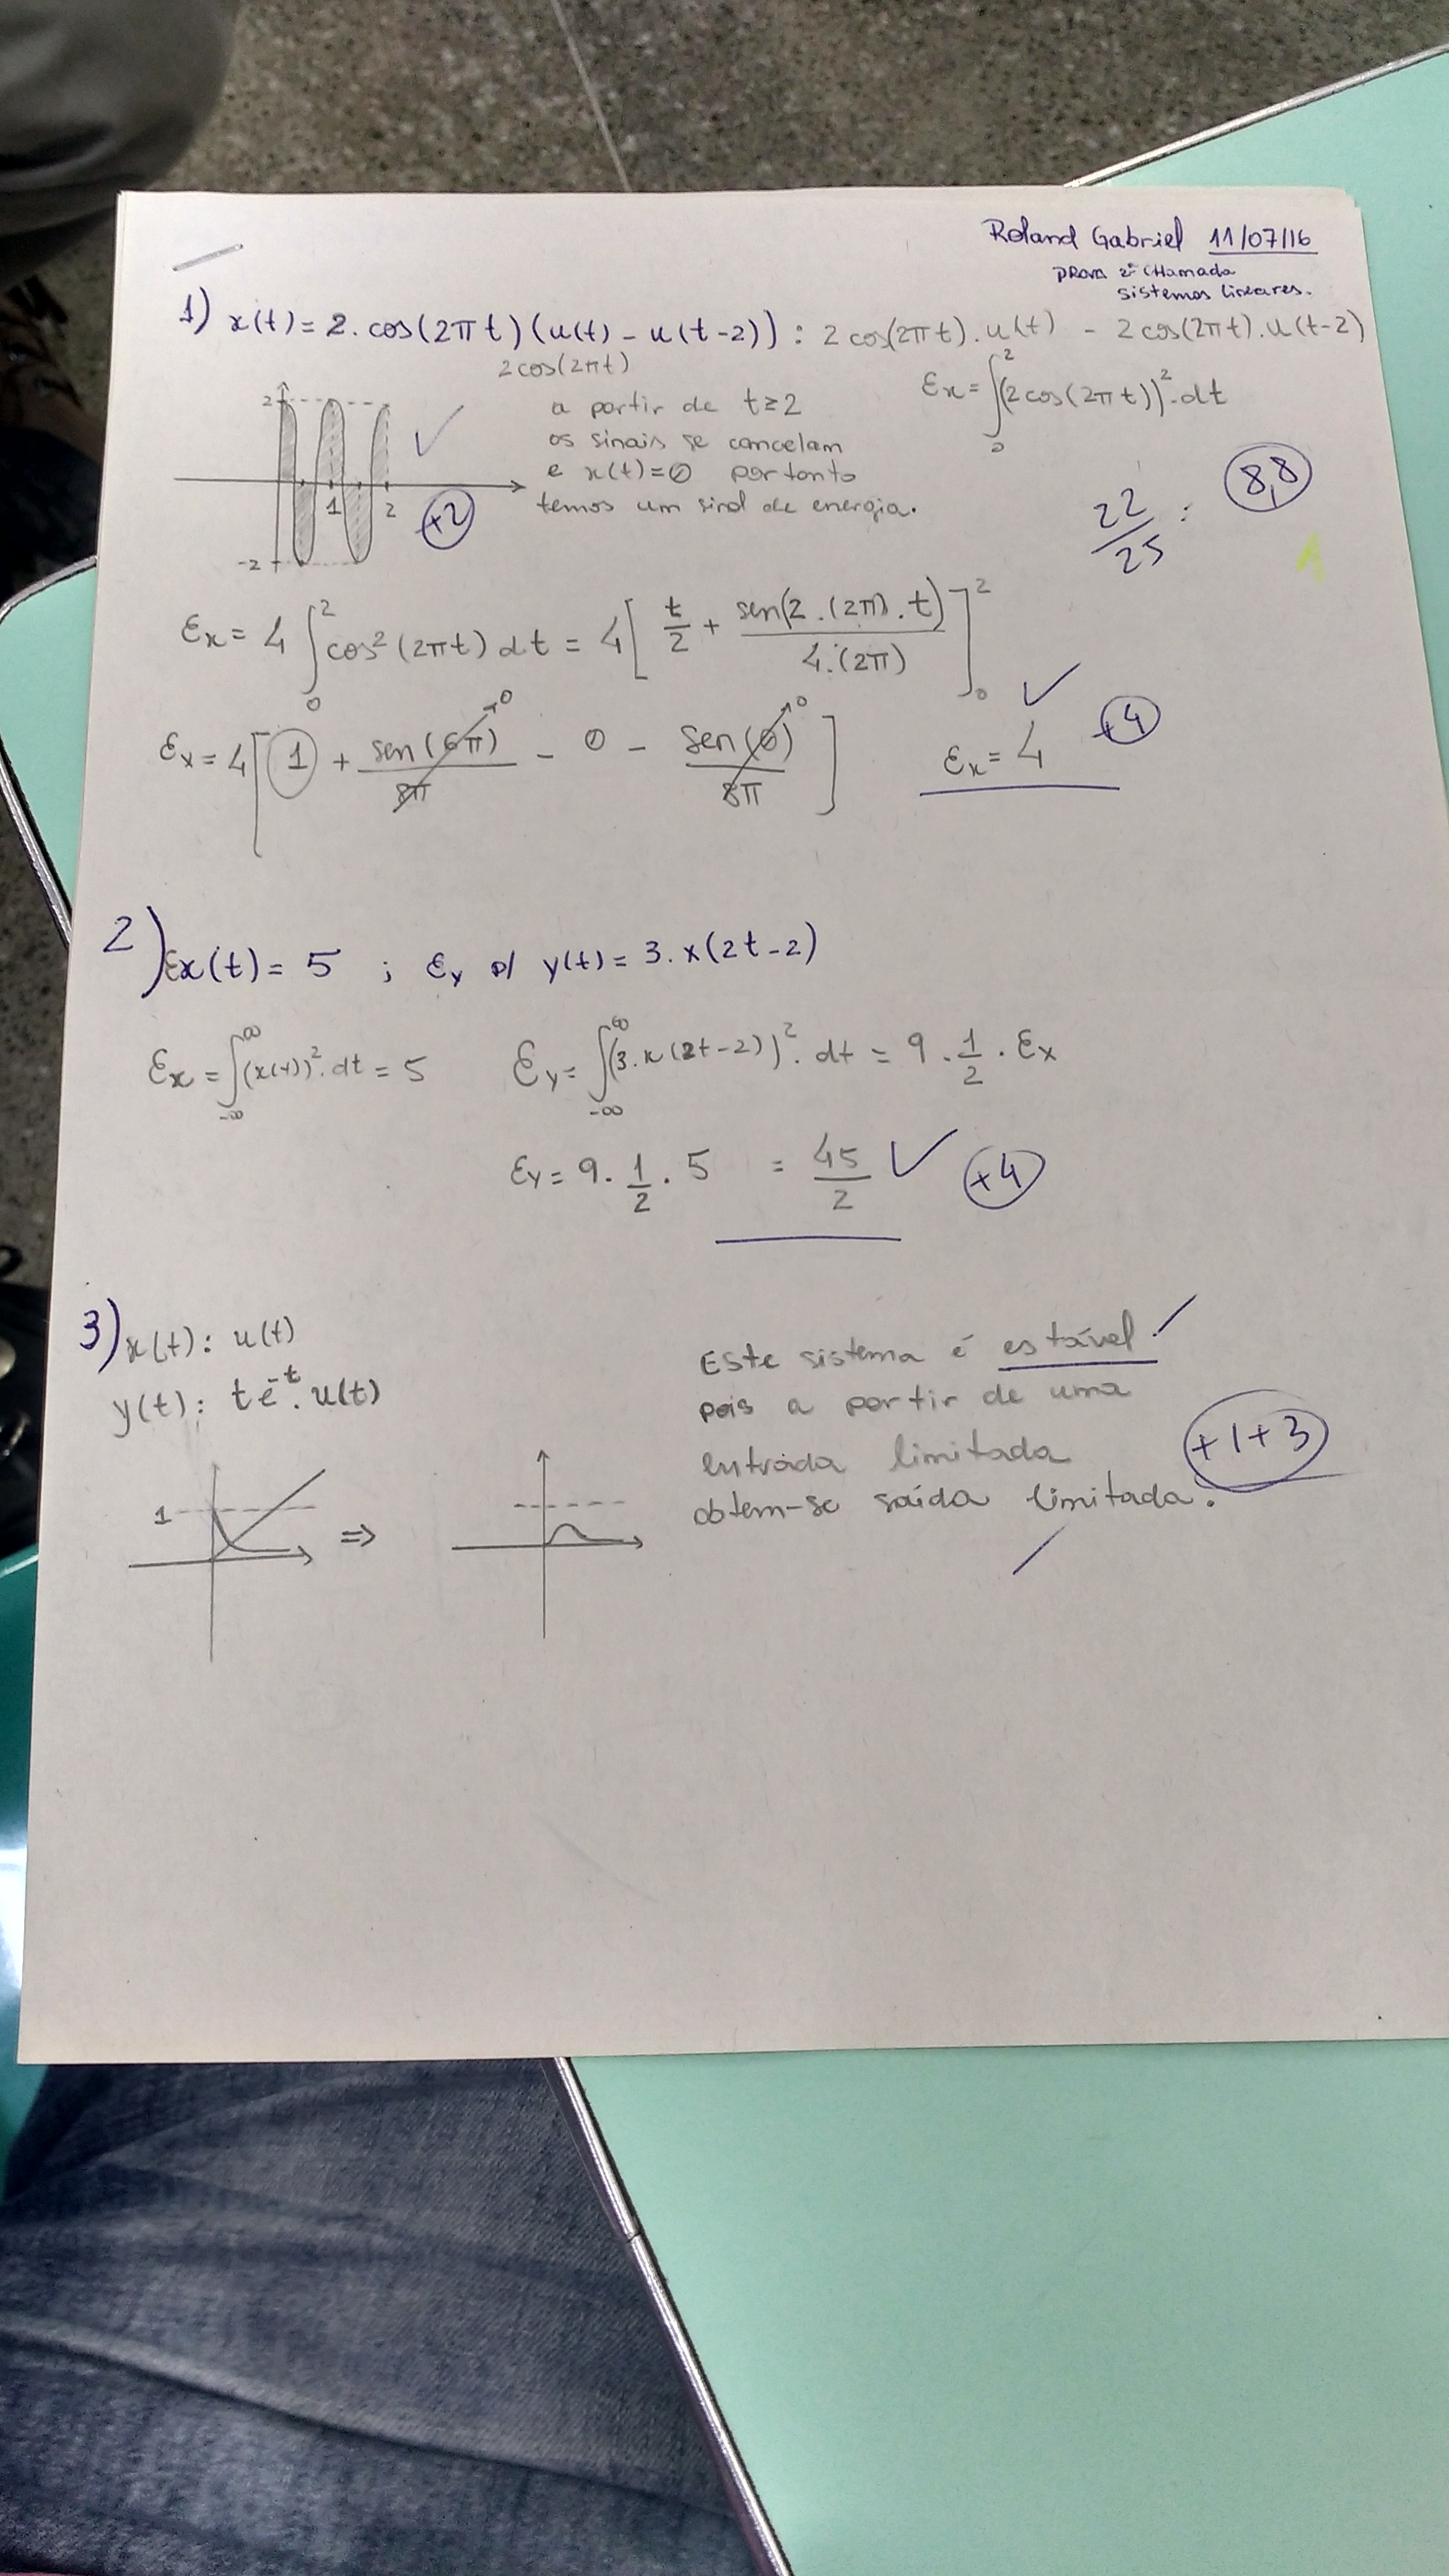 Roland Gabriel 11/07/16
Prova 2ª Chamada
sistemas lineares.
1) x(t) = 2. cos(2π t) (u(t) - u(t-2)) : 2 cos(2π t). u(t) - 2 cos(2π t). u(t-2)
2 cos(2π t)
2
1
2
-2
+2
a partir de t ≥ 2
os sinais se cancelam
e x(t) = 0 portanto
temos um sinal de energia.
Ex = ∫₀² (2 cos(2π t))². dt
22/25 : 8,8
Ex = 4 ∫₀² cos² (2π t) dt = 4 [ t/2 + sen(2.(2π).t) / 4.(2π) ]₀²
Ex = 4 [ 1 + sen(6π)/8π →0 - 0 - sen(0)/8π →0 ]
Ex = 4 +4
2) Ex(t) = 5 ; Ey p/ y(t) = 3. x(2t-2)
Ex = ∫₋∞^∞ (x(t))². dt = 5 Ey = ∫₋∞^∞ (3. x(2t-2))². dt = 9 . 1/2 . Ex
Ey = 9. 1/2 . 5 = 45/2 +4
3) x(t) : u(t)
y(t) : t e^-t . u(t)
1 ⇒
Este sistema é estável
pois a partir de uma
entrada limitada
obtem-se saída limitada.
+1+3